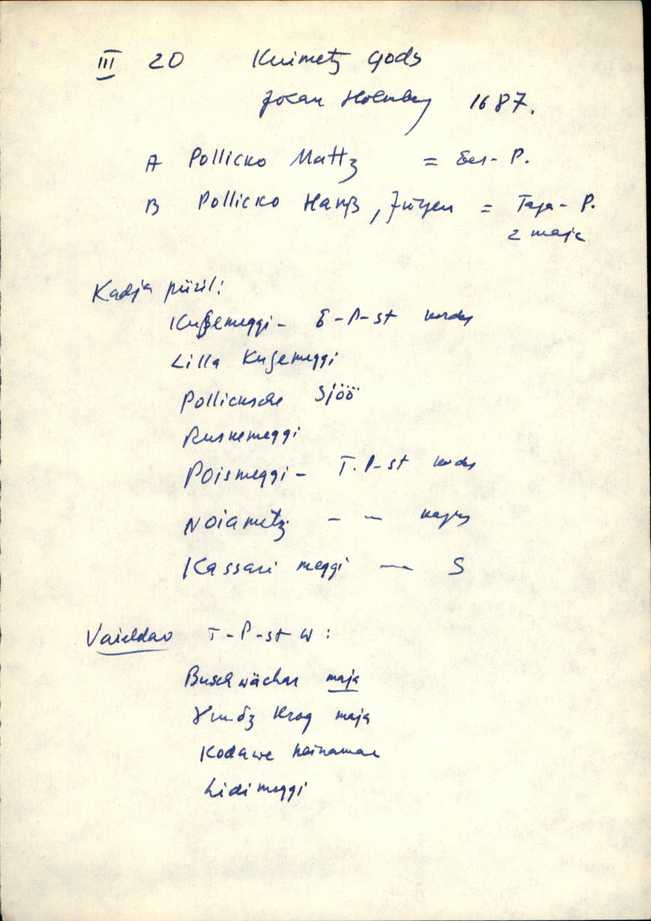 III 20 Kuimetz gods
Johan Holmberg 1687.
A Pollicko Mattz = Ees-P.
B Pollicko Hanß, Jürgen = Taga-P.
2 maja
Kadja piiril:
Kußemeggi - E-P-st
Lilla Kusemeggi
Pollickosche Sjöö
Rusnemeggi
Poismeggi - T.P-st
Noiametz - -
Kassari meggi — S
T-P-st W:
Buschwächar maja
Krog maja
Kodawe heinamaa
Lidimeggi